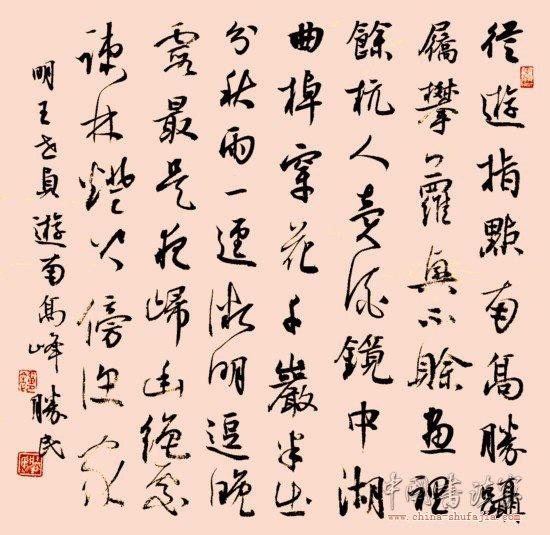 從遊指點南高勝躡
屩攀蘿興不賒畫裡
餘杭人賣酒鏡中湖
曲棹穿花千巖半出
分秋雨一逕微明逗晚
霞最是夜歸幽絕處
疎林燈火傍漁家
明王世貞遊南高峰 勝民
www.china-shufajia.com